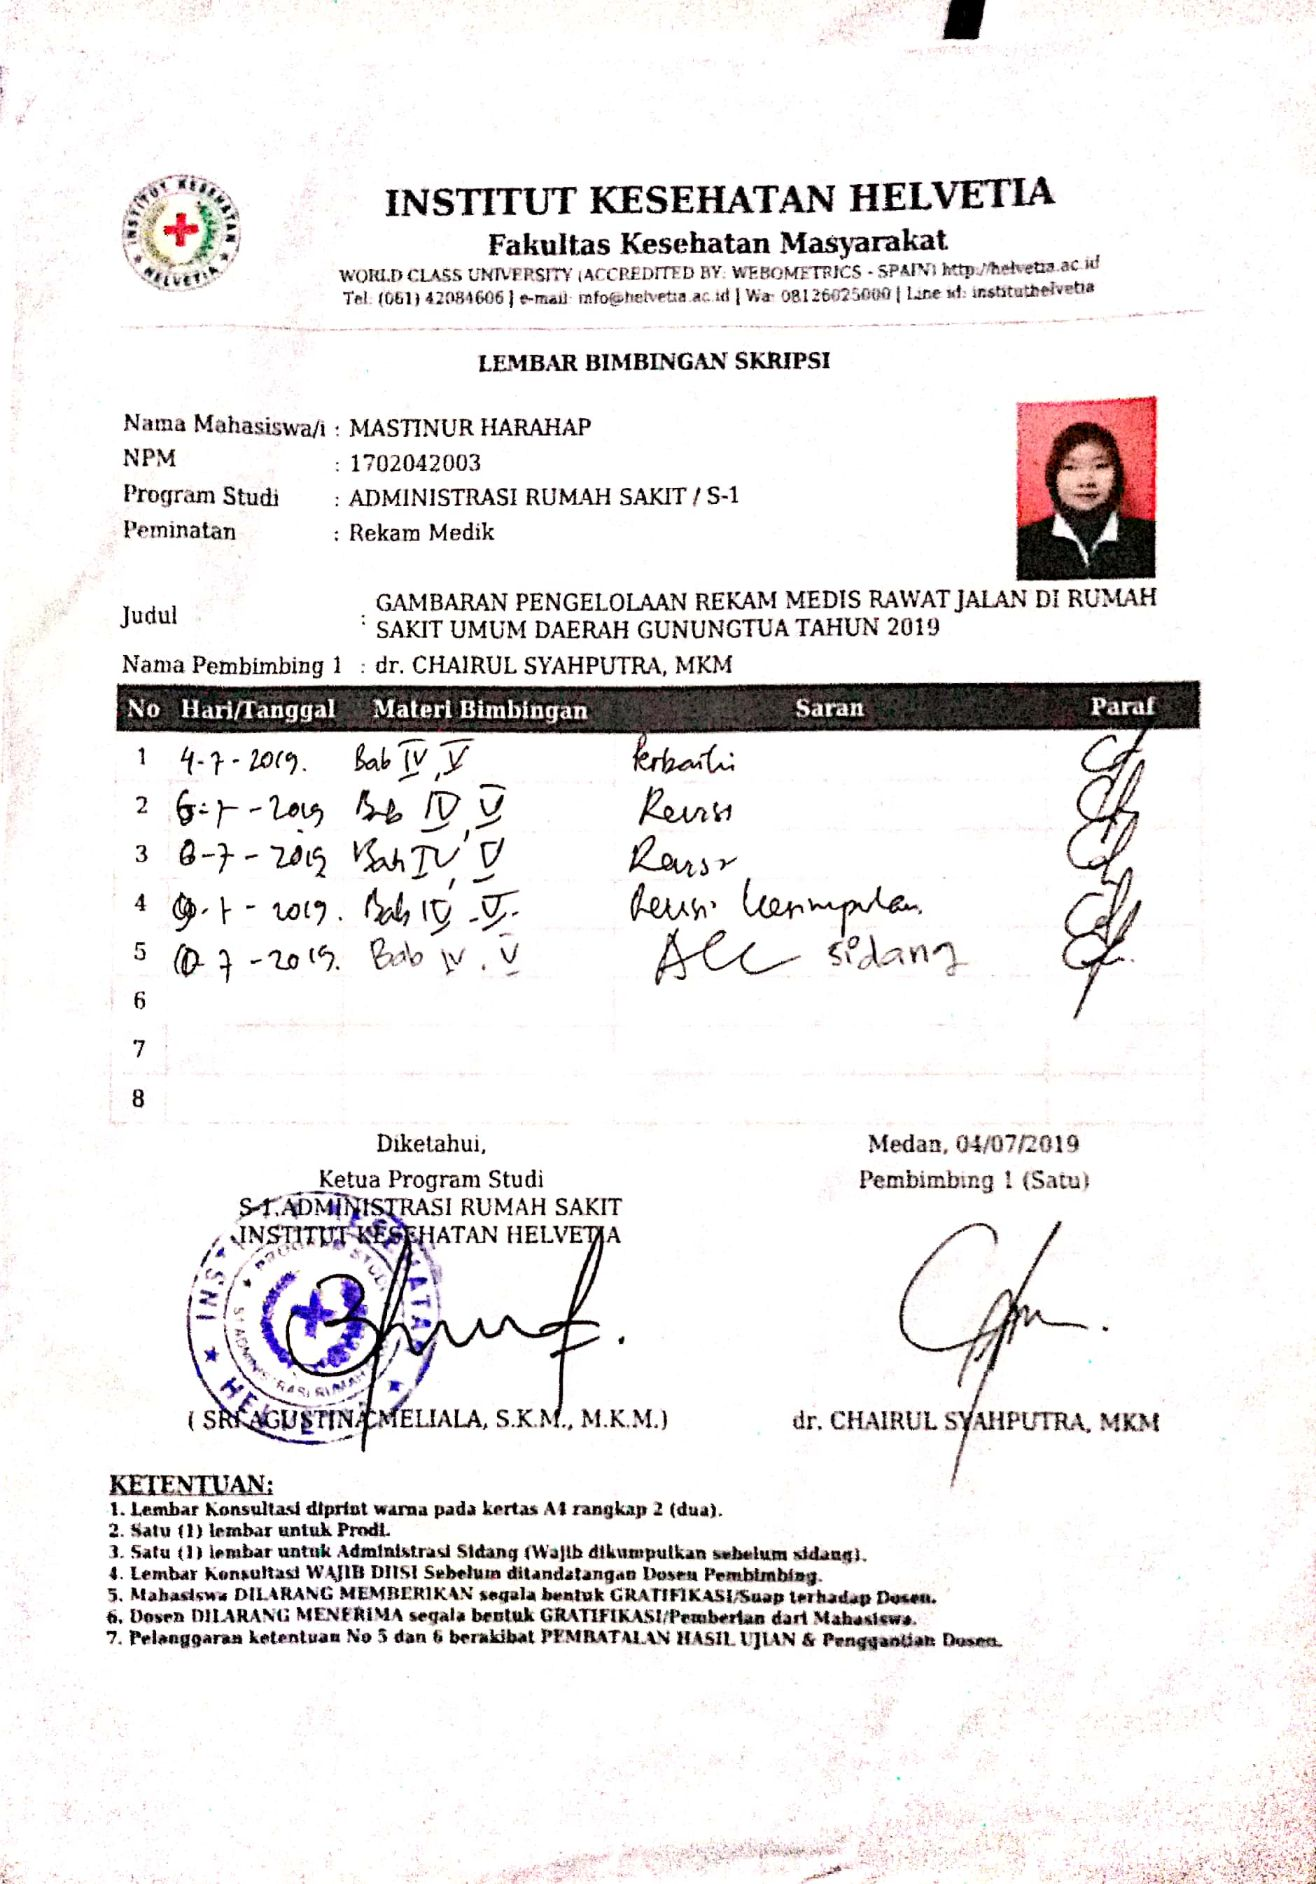 INSTITUT KESEHATAN HELVETIA
INSTITUT KESEHATAN HELVETIA
Fakultas Kesehatan Masyarakat
WORLD CLASS UNIVERSITY (ACCREDITED BY: WEBOMETRICS - SPAIN) http://helvetia.ac.id
Tel: (061) 42084606 | e-mail: info@helvetia.ac.id | Wa: 08126025000 | Line id: instituthelvetia
LEMBAR BIMBINGAN SKRIPSI
Nama Mahasiswa/i : MASTINUR HARAHAP
NPM : 1702042003
Program Studi : ADMINISTRASI RUMAH SAKIT / S-1
Peminatan : Rekam Medik
Judul : GAMBARAN PENGELOLAAN REKAM MEDIS RAWAT JALAN DI RUMAH
SAKIT UMUM DAERAH GUNUNGTUA TAHUN 2019
Nama Pembimbing 1 : dr. CHAIRUL SYAHPUTRA, MKM
No Hari/Tanggal Materi Bimbingan Saran Paraf
1 4-7-2019. Bab IV, V Perbaiki
2 Bab IV, V Revisi
3 Bab IV, V Revisi
4 Bab IV - V. Revisi kesimpulan.
5 10-7-2019. Bab IV. V ACC sidang
6
7
8
Diketahui,
Ketua Program Studi
S-1 ADMINISTRASI RUMAH SAKIT
INSTITUT KESEHATAN HELVETIA
( SRI AGUSTINA MELIALA, S.K.M., M.K.M.)
Medan, 04/07/2019
Pembimbing 1 (Satu)
dr. CHAIRUL SYAHPUTRA, MKM
KETENTUAN:
1. Lembar Konsultasi diprint warna pada kertas A4 rangkap 2 (dua).
2. Satu (1) lembar untuk Prodi.
3. Satu (1) lembar untuk Administrasi Sidang (Wajib dikumpulkan sebelum sidang).
4. Lembar Konsultasi WAJIB DIISI Sebelum ditandatangan Dosen Pembimbing.
5. Mahasiswa DILARANG MEMBERIKAN segala bentuk GRATIFIKASI/Suap terhadap Dosen.
6. Dosen DILARANG MENERIMA segala bentuk GRATIFIKASI/Pemberian dari Mahasiswa.
7. Pelanggaran ketentuan No 5 dan 6 berakibat PEMBATALAN HASIL UJIAN & Penggantian Dosen.